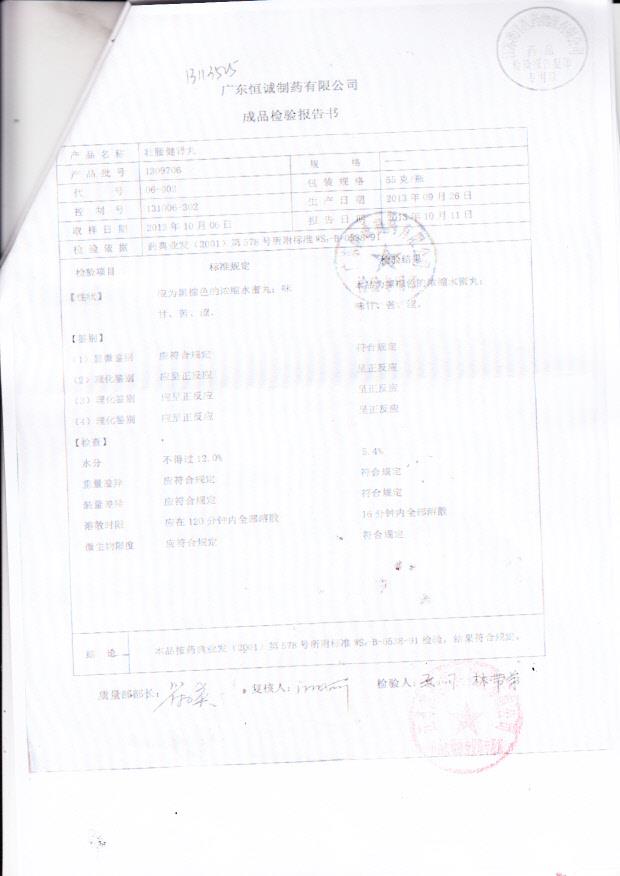 13113525
广东恒诚制药有限公司
成品检验报告书
产品名称 壮腰健肾丸 规格 ——
产品批号 1309706 包装规格 55克/瓶
代号 06-002 生产日期 2013年09月26日
控制号 131006-302 报告日期 2013年10月11日
取样日期 2013年10月06日
检验依据 药典业发（2001）第578号所附标准WS₃-B-0538-91
检验项目 标准规定 检验结果
【性状】 应为黑棕色的浓缩水蜜丸；味甘、苦、涩。 本品为黑棕色的浓缩水蜜丸；
味甘、苦、涩。
【鉴别】
（1）显微鉴别 应符合规定 符合规定
（2）理化鉴别 应呈正反应 呈正反应
（3）理化鉴别 应呈正反应 呈正反应
（4）理化鉴别 应呈正反应 呈正反应
【检查】
水分 不得过12.0% 5.4%
重量差异 应符合规定 符合规定
装量差异 应符合规定 符合规定
溶散时限 应在120分钟内全部溶散 16分钟内全部溶散
微生物限度 应符合规定 符合规定
结论 本品按药典业发（2001）第578号所附标准WS₃-B-0538-91检验，结果符合规定。
质量部部长： 复核人： 检验人：